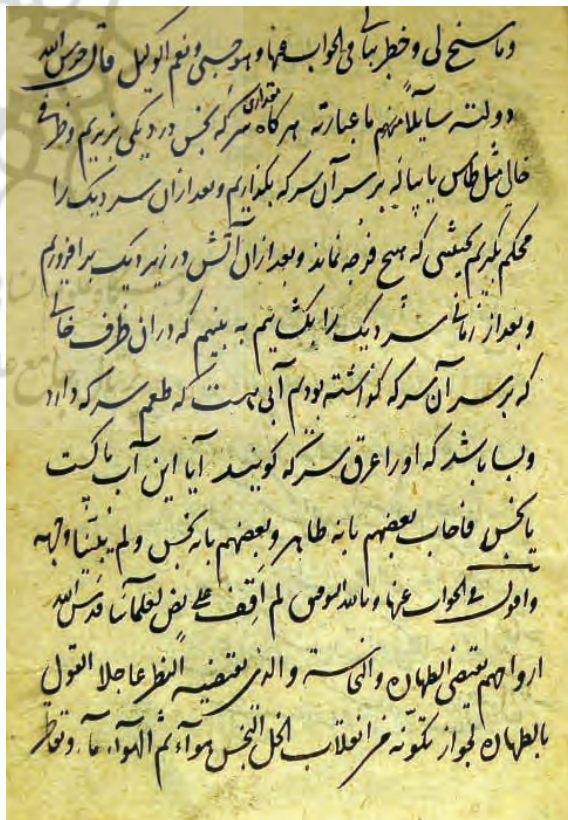 وما سنح لی وخطر ببالی فی الجواب عنها وهو حسبی ونعم الوکیل قال حرس الله
دولته سایلا منهم ما عبارته هرکاه مقداری سرکه نجس در دیکی بریزیم وظرفی
خالی مثل طاس یا پیاله بر سر آن سرکه بکذاریم وبعد ازان سر دیک را
محکم بکیریم بحیثی که هیچ فرجه نماند وبعد ازان آتش در زیر دیک برافروزیم
وبعد از زمانی سر دیک را بکشاییم به بینیم که دران ظرف خالی
که بر سر آن سرکه کذاشته بودیم آبی هست که طعم سرکه دارد
وبسا باشد که او را عرق سرکه کویند آیا این آب پاکست
یا نجس فاجاب بعضهم بانه طاهر وبعضهم بانه نجس ولم یبینا وجهه
واقول فی الجواب عنها وبالله التوفیق لم اقف علی نص لعلمائنا قدس الله
ارواحهم یقتضی الطهارة والنجاسة والذی یقتضیه النظر عاجلا القول
بالطهارة لجواز تکونه من انقلاب الخل النجس هواء ثم الهواء ماء وتقاطر